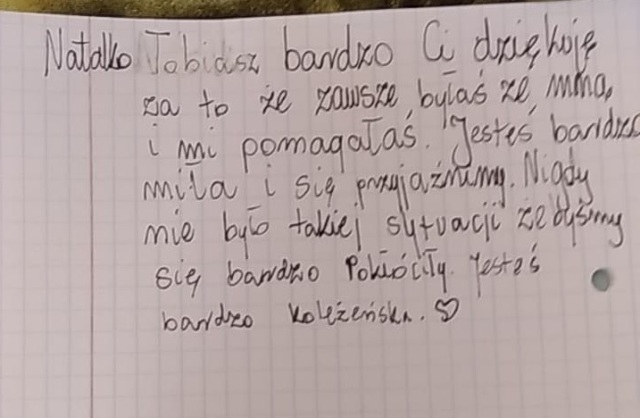 Natalko Tobiasz bardzo Ci dziękuję
za to że zawsze byłaś ze mną,
i mi pomagałaś. Jesteś bardzo
miła i się przyjaźnimy. Nigdy
nie było takiej sytuacji żebyśmy
się bardzo Pokłóciły. Jesteś
bardzo koleżeńska. ♡